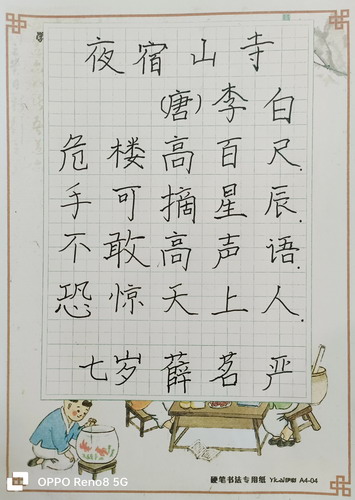 夜宿山寺
(唐)李白
危楼高百尺.
手可摘星辰.
不敢高声语.
恐惊天上人.
七岁薛茗严
硬笔书法专用纸 A4-04
OPPO Reno8 5G